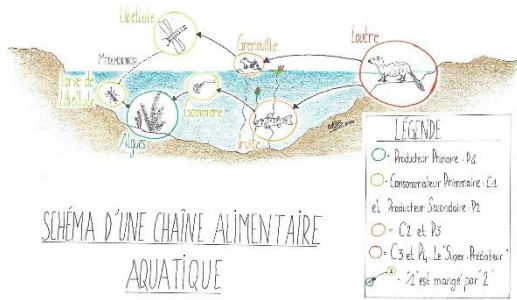 Libellule
MÉTAMORPHOSE
Grenouille
Loutre
Larve de
Libellule
Gammare
Algues
Truite
LÉGENDE
= Producteur Primaire = P1
= Consommateur Primmaire = C1
et Producteur Secondaire = P2
= C2 et P3
= C3 et P4. Le "Super-Prédateur"
= "1" est mangé par "2"
SCHÉMA D'UNE CHAÎNE ALIMENTAIRE
AQUATIQUE